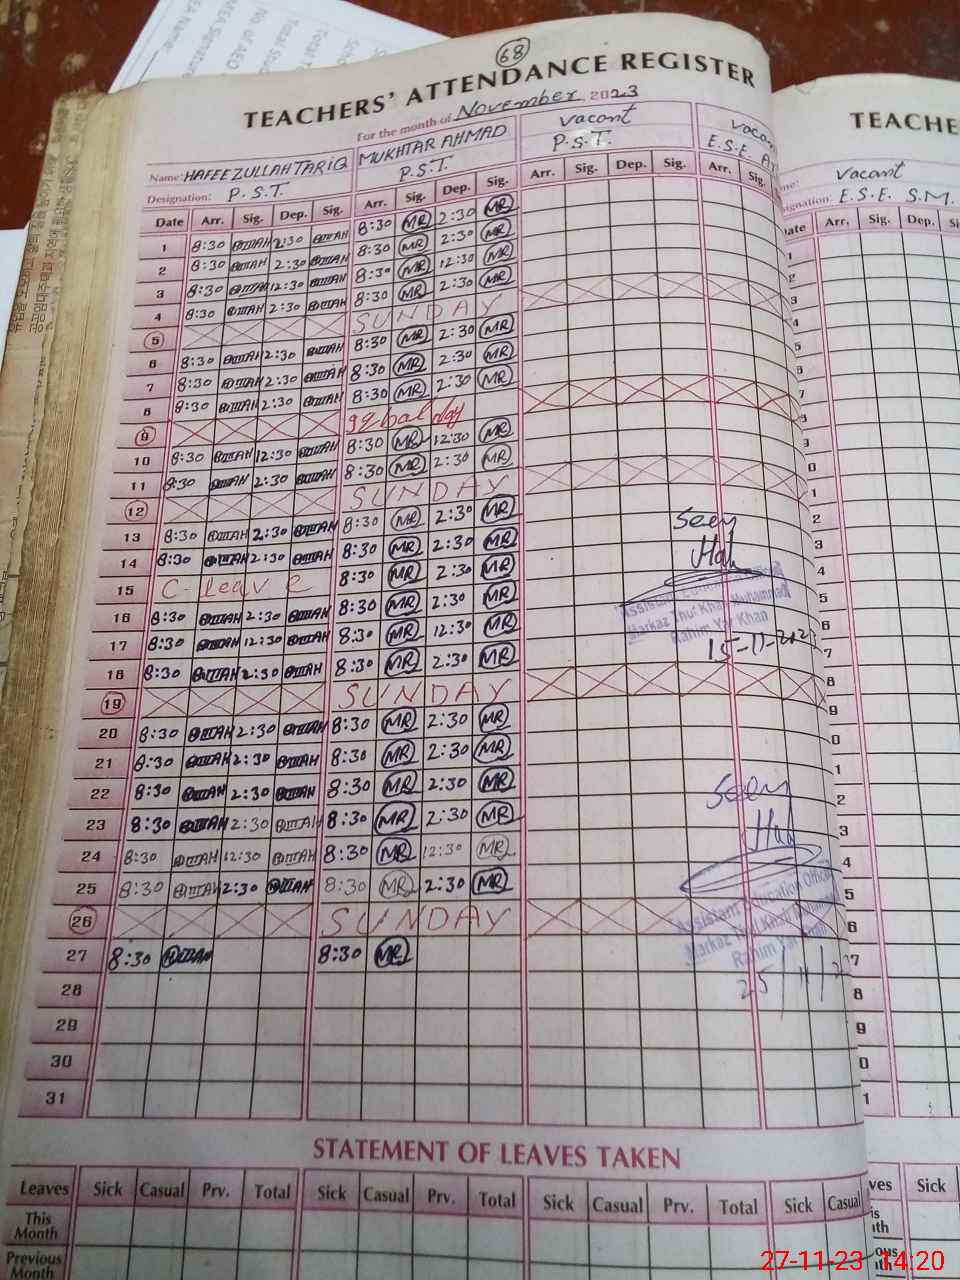 68
TEACHERS' ATTENDANCE REGISTER
For the month of November, 2023
Name: HAFEEZULLAH TARIQ MUKHTAR AHMAD vacant
Designation: P.S.T. P.S.T. P.S.T. E.S.E.
Date Arr. Sig. Dep. Sig. Arr. Sig. Dep. Sig. Arr. Sig. Dep. Sig. Arr. Sig.
1 8:30 2:30 8:30 MR 2:30 MR
2 8:30 2:30 8:30 MR 2:30 MR
3 8:30 12:30 8:30 MR 12:30 MR
4 8:30 2:30 8:30 MR 2:30 MR
5 SUNDAY
6 8:30 2:30 8:30 MR 2:30 MR
7 8:30 2:30 8:30 MR 2:30 MR
8 8:30 2:30 8:30 MR 2:30 MR
9 iqbal day
10 8:30 12:30 8:30 MR 12:30 MR
11 8:30 2:30 8:30 MR 2:30 MR
12 SUNDAY
13 8:30 2:30 8:30 MR 2:30 MR
14 8:30 2:30 8:30 MR 2:30 MR
15 C-leave 8:30 MR 2:30 MR
16 8:30 2:30 8:30 MR 2:30 MR
17 8:30 12:30 8:30 MR 12:30 MR
18 8:30 2:30 8:30 MR 2:30 MR
19 SUNDAY
20 8:30 2:30 8:30 MR 2:30 MR
21 8:30 2:30 8:30 MR 2:30 MR
22 8:30 2:30 8:30 MR 2:30 MR
23 8:30 2:30 8:30 MR 2:30 MR
24 8:30 12:30 8:30 MR 12:30 MR
25 8:30 2:30 8:30 MR 2:30 MR
26 SUNDAY
27 8:30 8:30 MR
28
29
30
31
Seen
Assistant Education Officer
Markaz Thul Khair Muhammad
Rahim Yar Khan
15-11-2023
Seen
Assistant Education Officer
Markaz Thul Khair Muhammad
Rahim Yar Khan
25/11/2
STATEMENT OF LEAVES TAKEN
Leaves Sick Casual Prv. Total Sick Casual Prv. Total Sick Casual Prv. Total Sick Casual
This Month
Previous Month
vacant
E.S.E. S.M.
Arr. Sig. Dep.
Sick
27-11-23 14:20